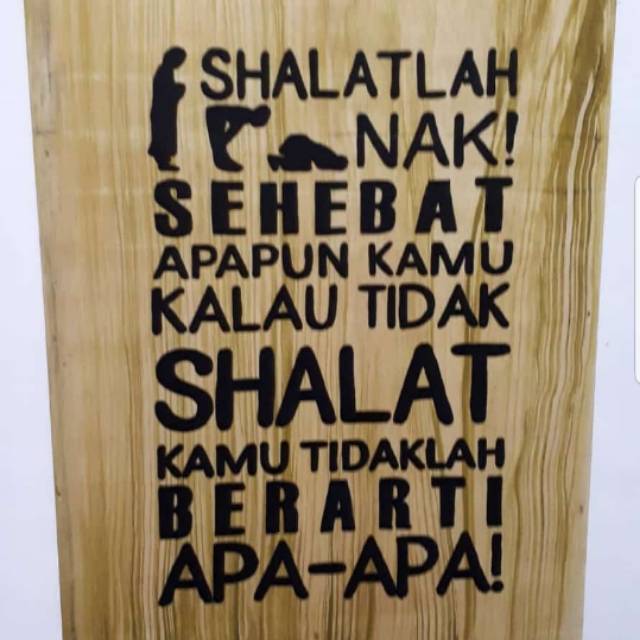 SHALATLAH
NAK!
SEHEBAT
APAPUN KAMU
KALAU TIDAK
SHALAT
KAMU TIDAKLAH
BERARTI
APA-APA!